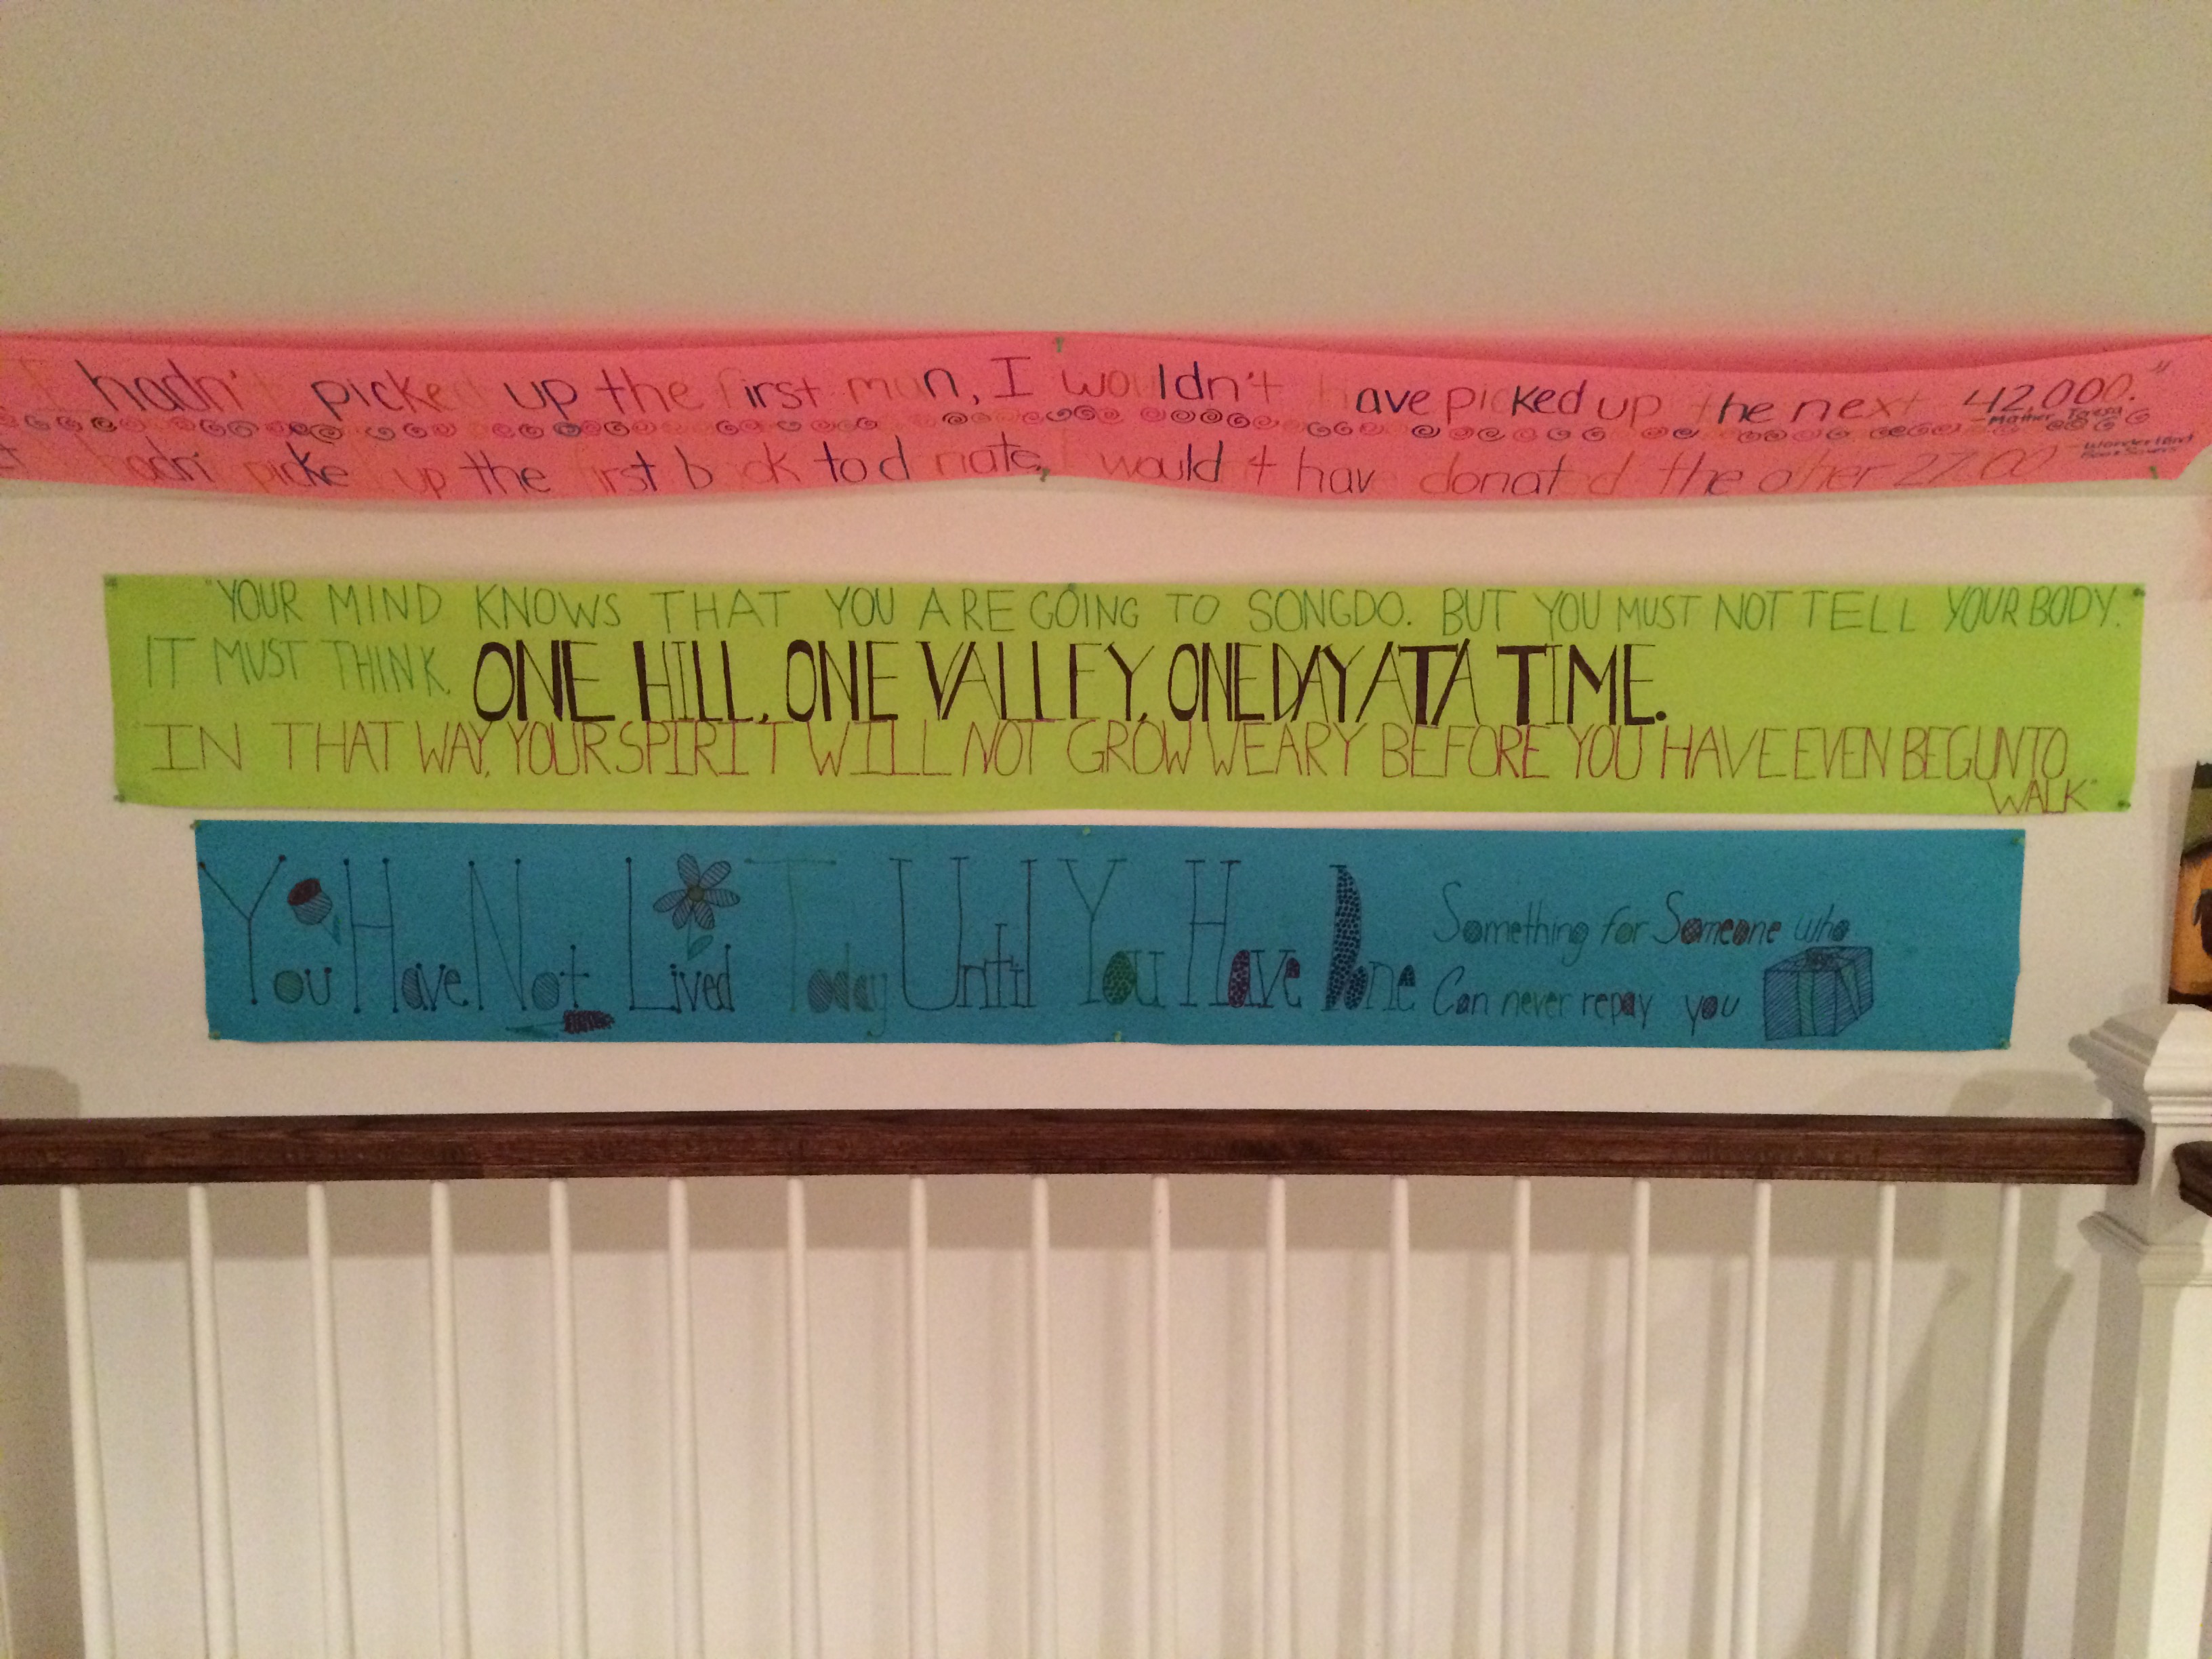 I hadn't picked up the first man, I wouldn't have picked up the next 42,000."
-Mother Teresa
I hadn't picked up the first book to donate, I wouldn't have donated the other
"YOUR MIND KNOWS THAT YOU ARE GOING TO SONGDO. BUT YOU MUST NOT TELL YOUR BODY.
IT MUST THINK, ONE HILL, ONE VALLEY, ONE DAY AT A TIME.
IN THAT WAY, YOUR SPIRIT WILL NOT GROW WEARY BEFORE YOU HAVE EVEN BEGUN TO
WALK"
You Have Not Lived Today Until You Have Done
Something for Someone who
Can never repay you